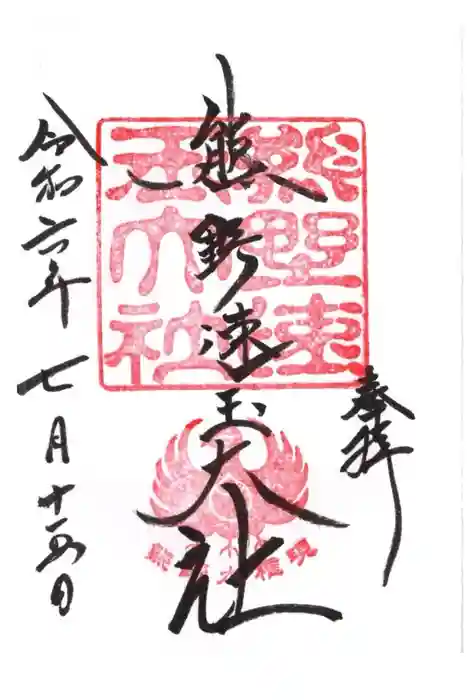 奉拝
熊野速玉大社
令和六年七月十五日
熊野速
玉大社
熊野大権現